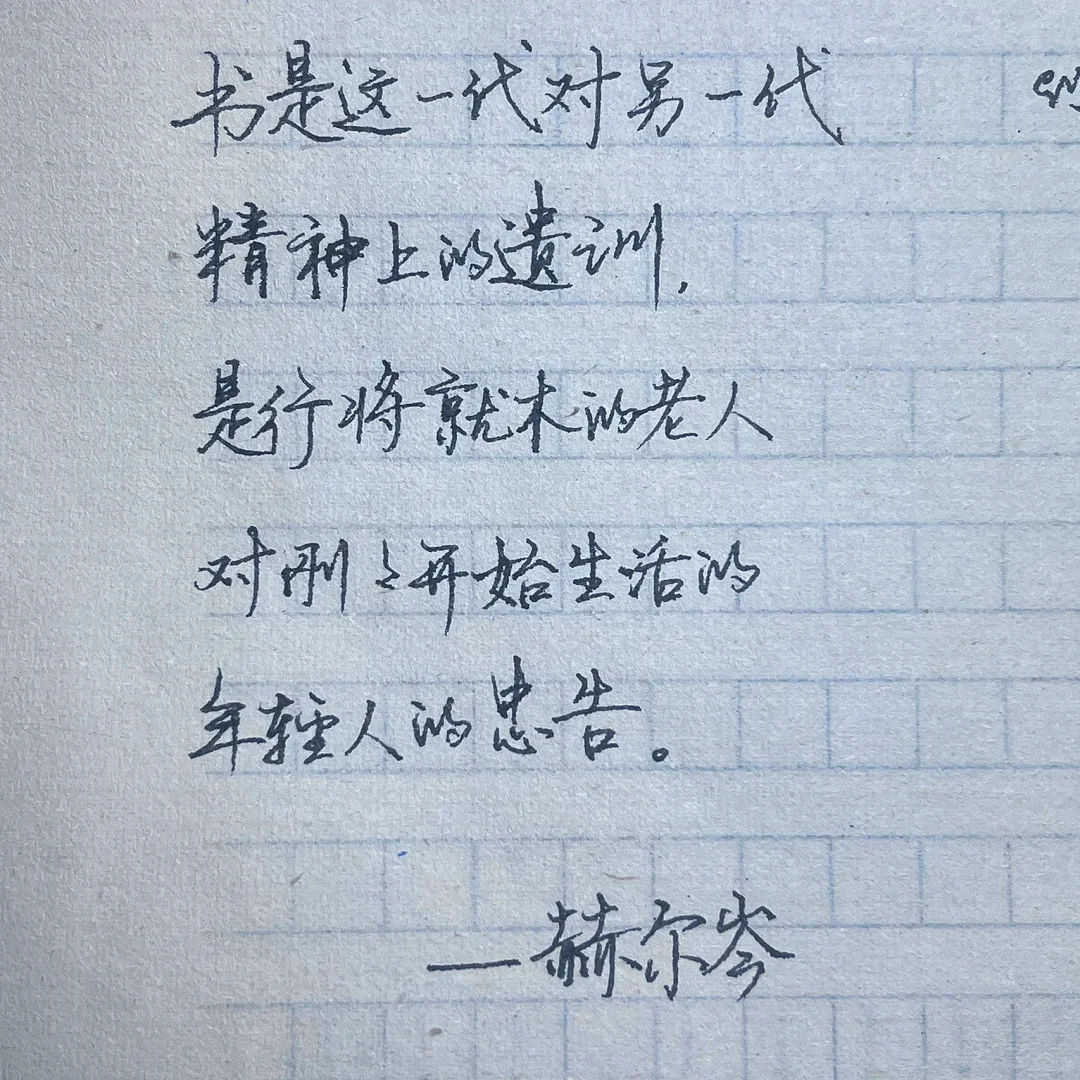 书是这一代对另一代
精神上的遗训,
是行将就木的老人
对刚々开始生活的
年轻人的忠告。
——赫尔岑